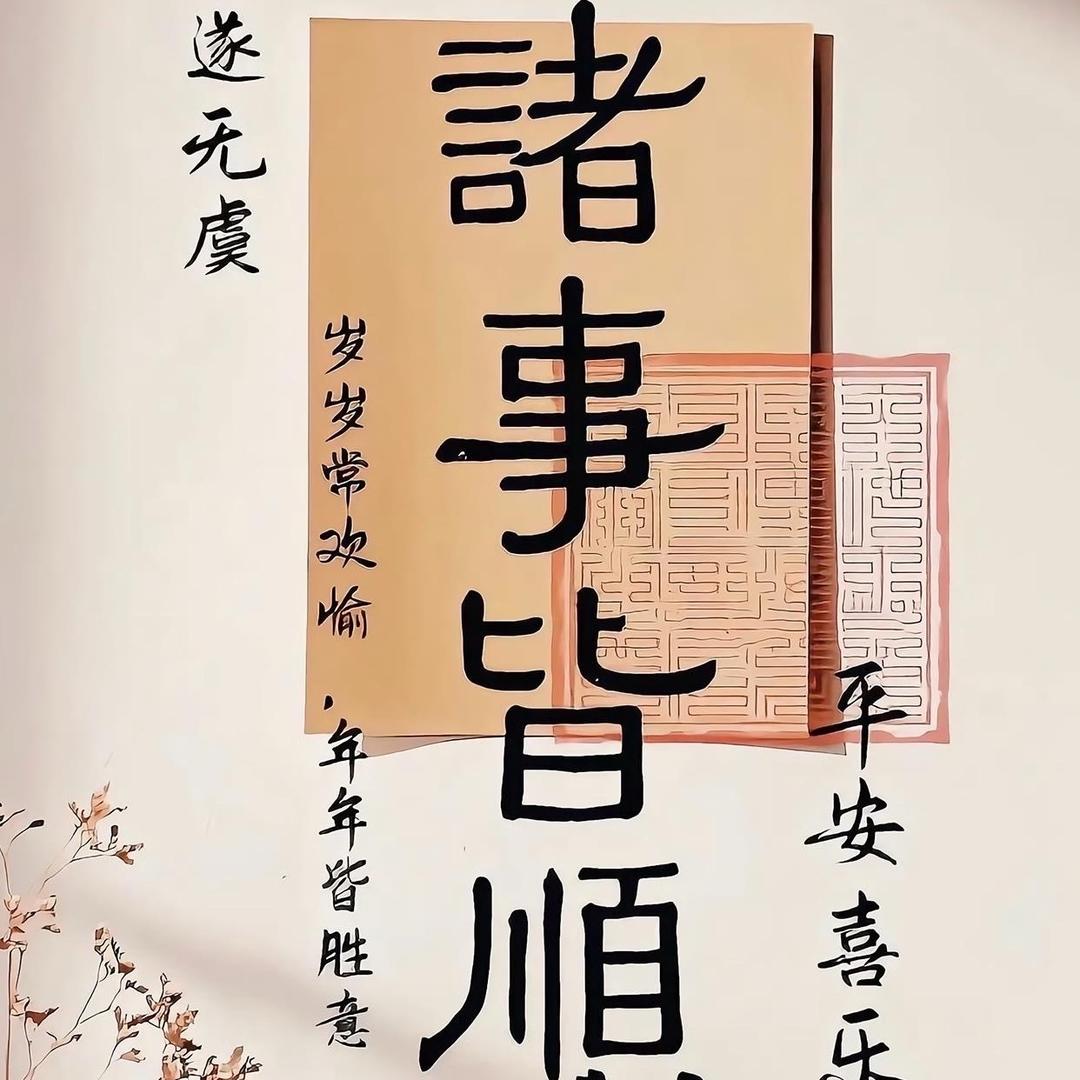 諸事皆順
平安喜乐
岁岁常欢愉
，年年皆胜意
遂无虞